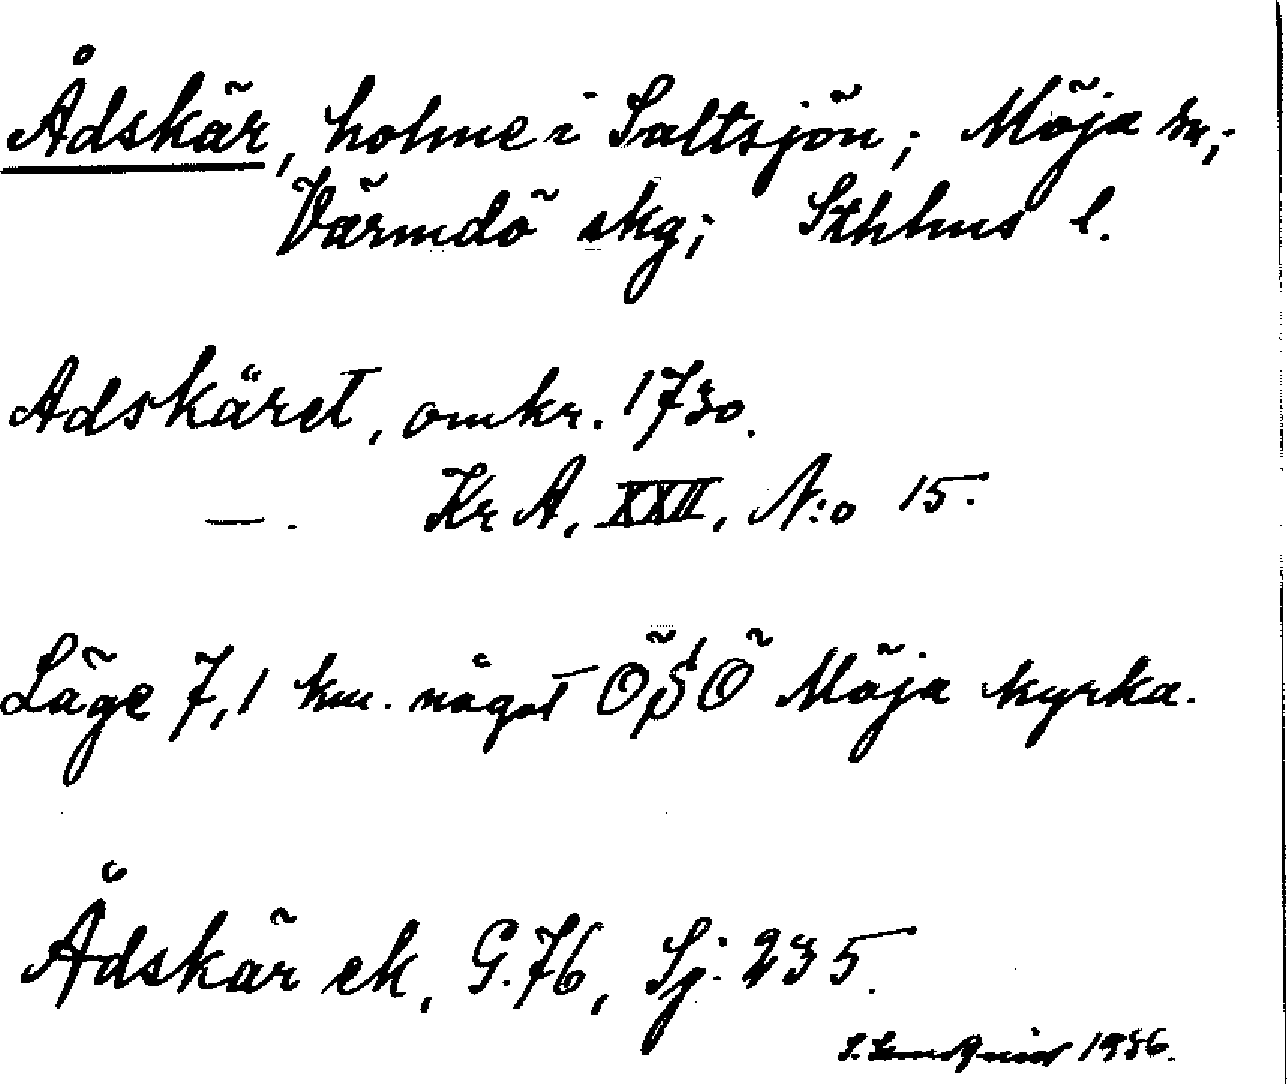 Ådskär, holme i Saltsjön; Möja sn,;
Värmdö skg; Sthlms l.
Adskäret, omkr. 1730.
—. Kr A, XXII, N:o 15.
Läge 7,1 km. något ÖSÖ Möja kyrka.
Ådskär ek, G.76, Sj. 235.
1936.